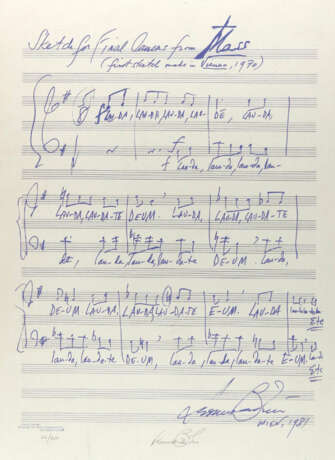 Sketch for Final Canons from Mass
(first sketch made in Vienna, 1970)
LAU-DA, LAU-DA, LAU-DA, LAU-
DE, LAU-DA,
f Lau-da, lau-da, lau-da, lau-
LAU-DA, LAU-DA-TE DE-UM. LAU-DA, LAU-DA, LAU-DA-TE
de, lau-da, lau-da, lau-da-te DE-UM. lau-da,
DE-UM. LAU-DA, LAU-DA, LAU-DA-TE E-UM. LAU-DA
Etc
lau-da, lau-da-te DE-UM, lau-da, lau-da, lau-da-te E-UM.
Etc
Leonard Bernstein
WIEN, 1981